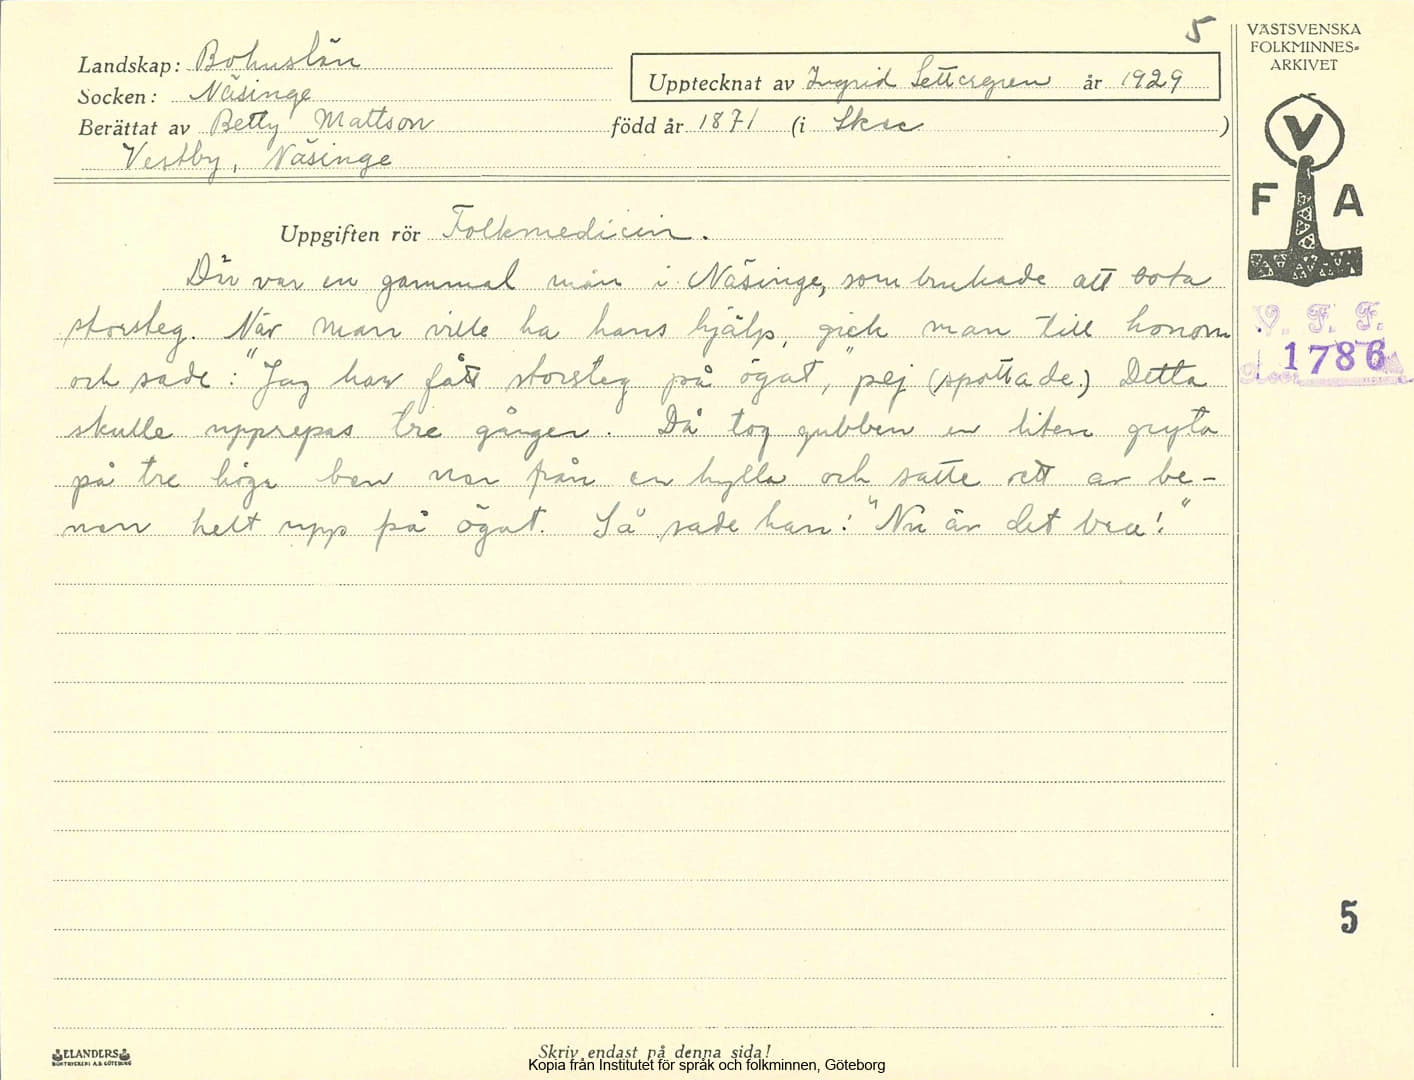 5
VÄSTSVENSKA
FOLKMINNES-
ARKIVET
Landskap: Bohuslän
Upptecknat av Ingrid Settergren år 1929
Socken: Näsinge
Berättat av Betty Mattson född år 1871 (i Skee)
Vestby, Näsinge
V
F A
Uppgiften rör Folkmedicin.
Där var en gammal man i Näsinge, som brukade att bota
storsteg. När man ville ha hans hjälp, gick man till honom
och sade: "Jag har fått storsteg på ögat," pej (spottade.) Detta
skulle upprepas tre gånger. Då tog gubben en liten gryta
på tre höga ben ner från en hylla och satte ett av be-
nen helt upp på ögat. Så sade han: "Nu är det bra!"
V. F. F.
1786
5
ELANDERS
BOKTRYCKERI A.B. GÖTEBORG
Skriv endast på denna sida!
Kopia från Institutet för språk och folkminnen, Göteborg